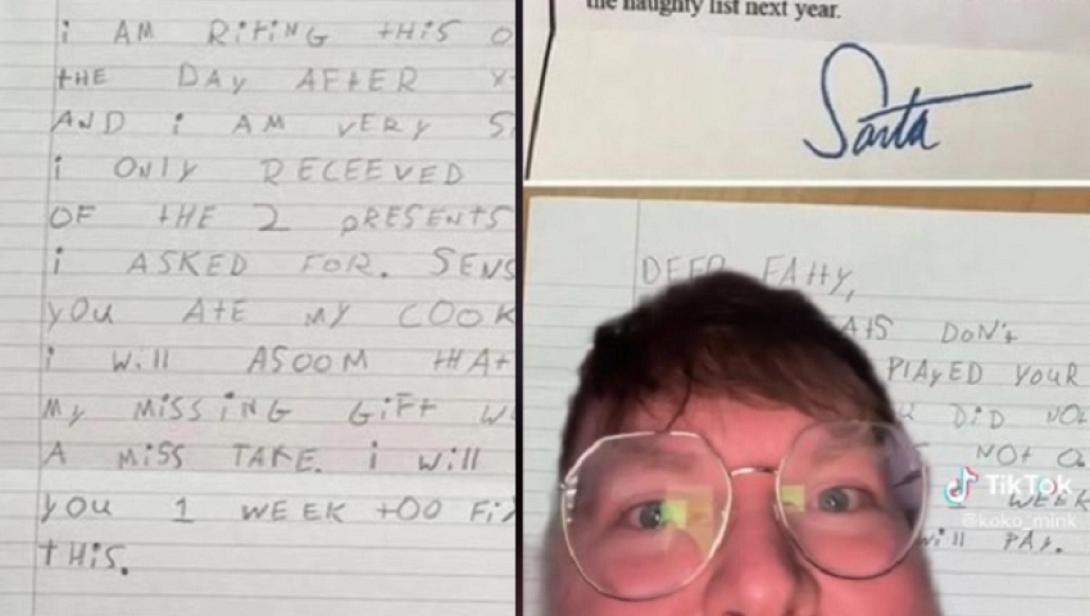 i AM RitiNG tHiS
tHE DAY AFtER
AND i AM VERY
i ONLY RECEEVED
OF tHE 2 PRESENtS
i ASKED FOR. SENS
YOU AtE MY COOK
i Will ASOOM tHAt
MY MiSSiNG GiFt
A MiSS TAKE. i Will
YOU 1 WEEK tOO
tHiS.
the naughty list next year.
Santa
FAttY,
DON't
PlAYED YOUR
DiD
NOt
WEEK
Will PAY.
TikTok
@koko_mink